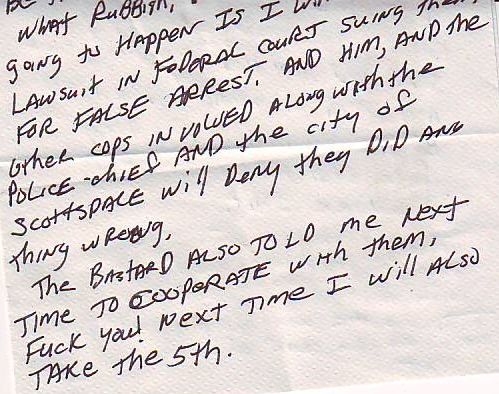 What Rubbish,
going to Happen Is I
Lawsuit in Federal court suing them,
FOR FALSE ARREST. AND HIM, AND the
other cops INVOLVED Along with the
POLICE-chief AND the city of
SCOTTSDALE will Deny they DID ANY
thing wrong.
The BASTARD ALSO TOLD me NEXT
TIME TO COOPERATE with them,
Fuck You! Next Time I will ALSO
TAKE the 5th.